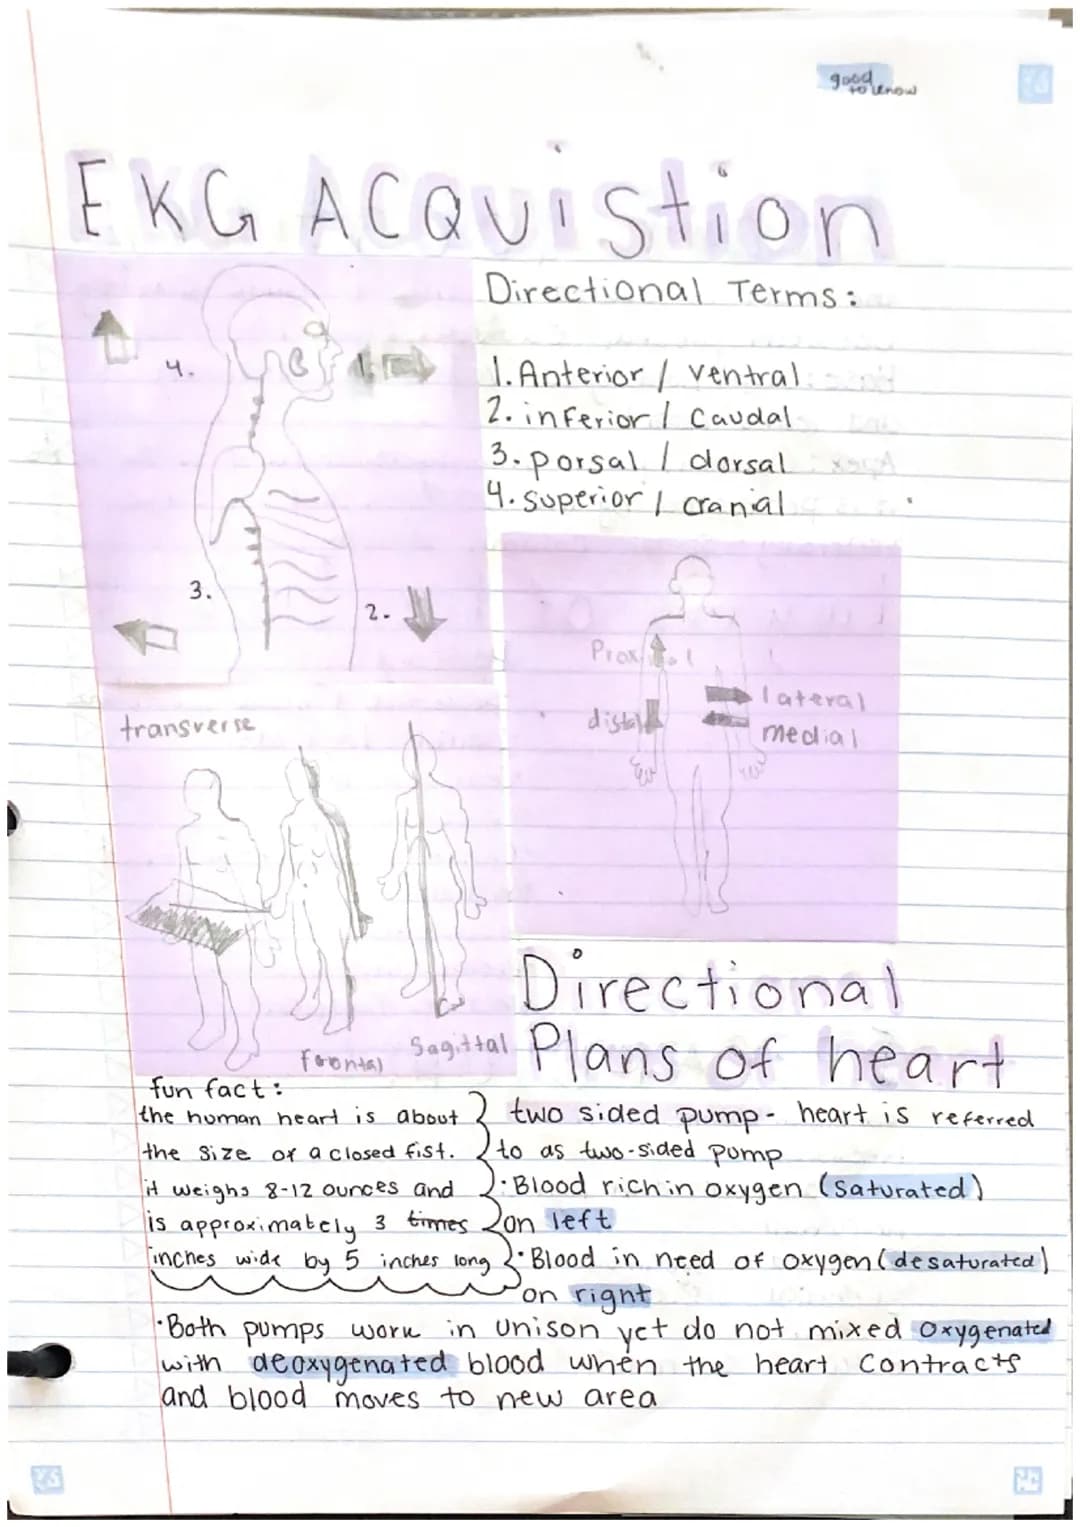 good
to know
EKG ACQuistion
Directional Terms:
1. Anterior / ventral
2. inferior / Caudal
3. porsal / dorsal
4. superior / cranial
4.
1.
3.
2.
Proximal
distal
lateral
medial
transverse
frontal
Sagittal
Directional
Plans of heart
fun fact:
the human heart is about
the size of a closed fist.
it weighs 8-12 ounces and
is approximately 3 times
inches wide by 5 inches long
two sided pump- heart is referred
to as two-sided pump
·Blood rich in oxygen (saturated)
on left
·Blood in need of oxygen (desaturated)
on right
·Both pumps work in unison yet do not mixed oxygenated
with deoxygenated blood when the heart contracts
and blood moves to new area